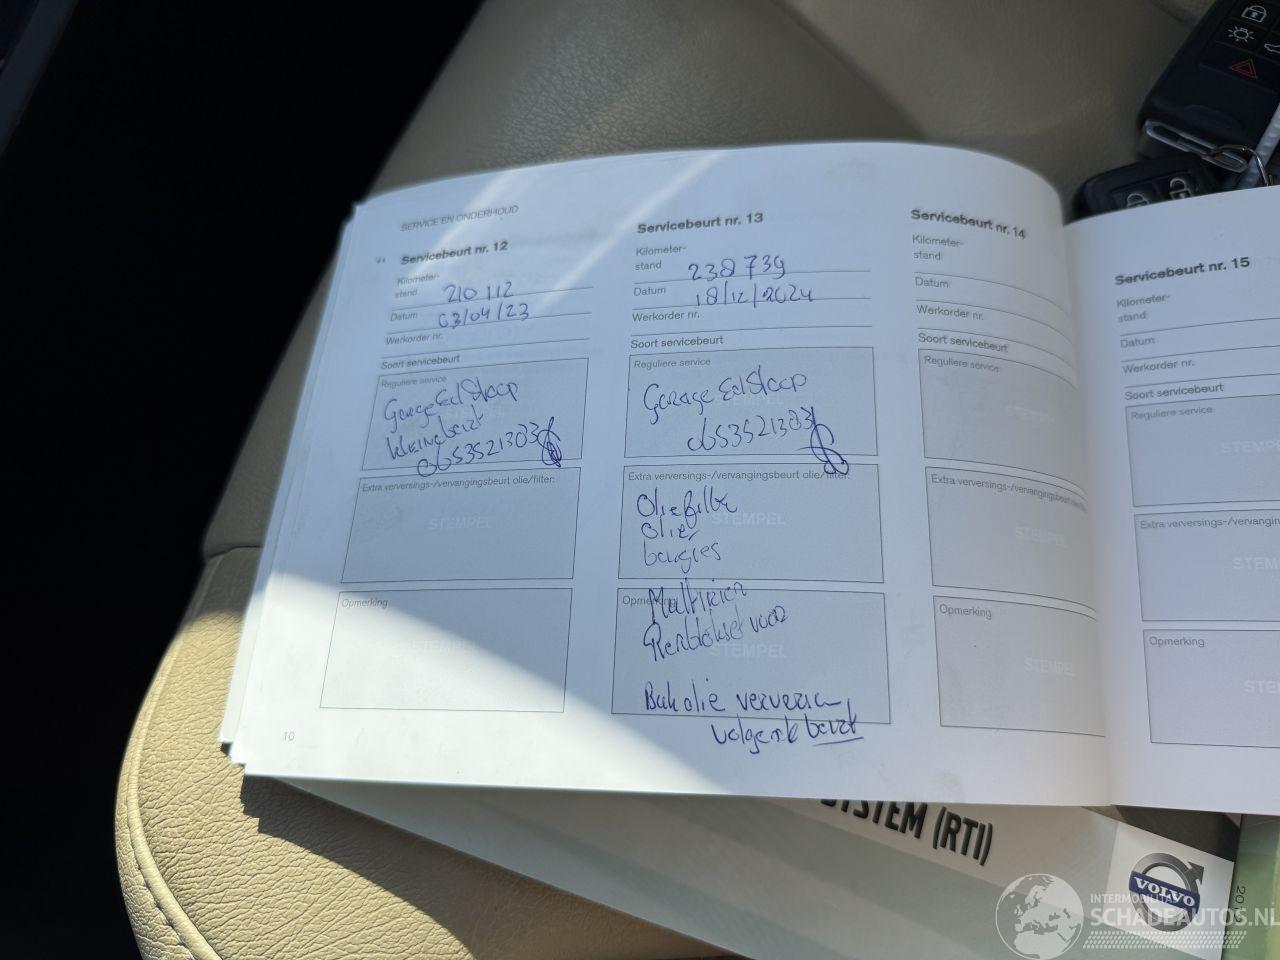 SERVICE EN ONDERHOUD
Servicebeurt nr. 12
Kilometer-
stand 210 112
Datum 03/04/23
Werkorder nr.
Soort servicebeurt
Reguliere service
Garage Ed Stoop
kleine beurt
0653521303
Extra verversings-/vervangingsbeurt olie/filter:
STEMPEL
Opmerking
STEMPEL
10
Servicebeurt nr. 13
Kilometer-
stand 238 739
Datum 18/12/2024
Werkorder nr.
Soort servicebeurt
Reguliere service
Garage Ed Stoop
0653521303
Extra verversings-/vervangingsbeurt olie/filter:
Oliefilte
STEMPEL
olie
bougies
Opmerking
Multiriem
Remblokset voor
STEMPEL
Bak olie ververen
volgende beurt
Servicebeurt nr. 14
Kilometer-
stand
Datum
Werkorder nr.
Soort servicebeurt
Reguliere service
STEMPEL
Extra verversings-/vervangingsbeurt
STEMPEL
Opmerking
STEMPEL
Servicebeurt nr. 15
Kilometer-
stand
Datum
Werkorder nr.
Soort servicebeurt
Reguliere service
STEM
Extra verversings-/vervanging
STEM
Opmerking
STE
SYSTEM (RTI)
VOLVO
INTERMOBILITAS
SCHADEAUTOS.NL